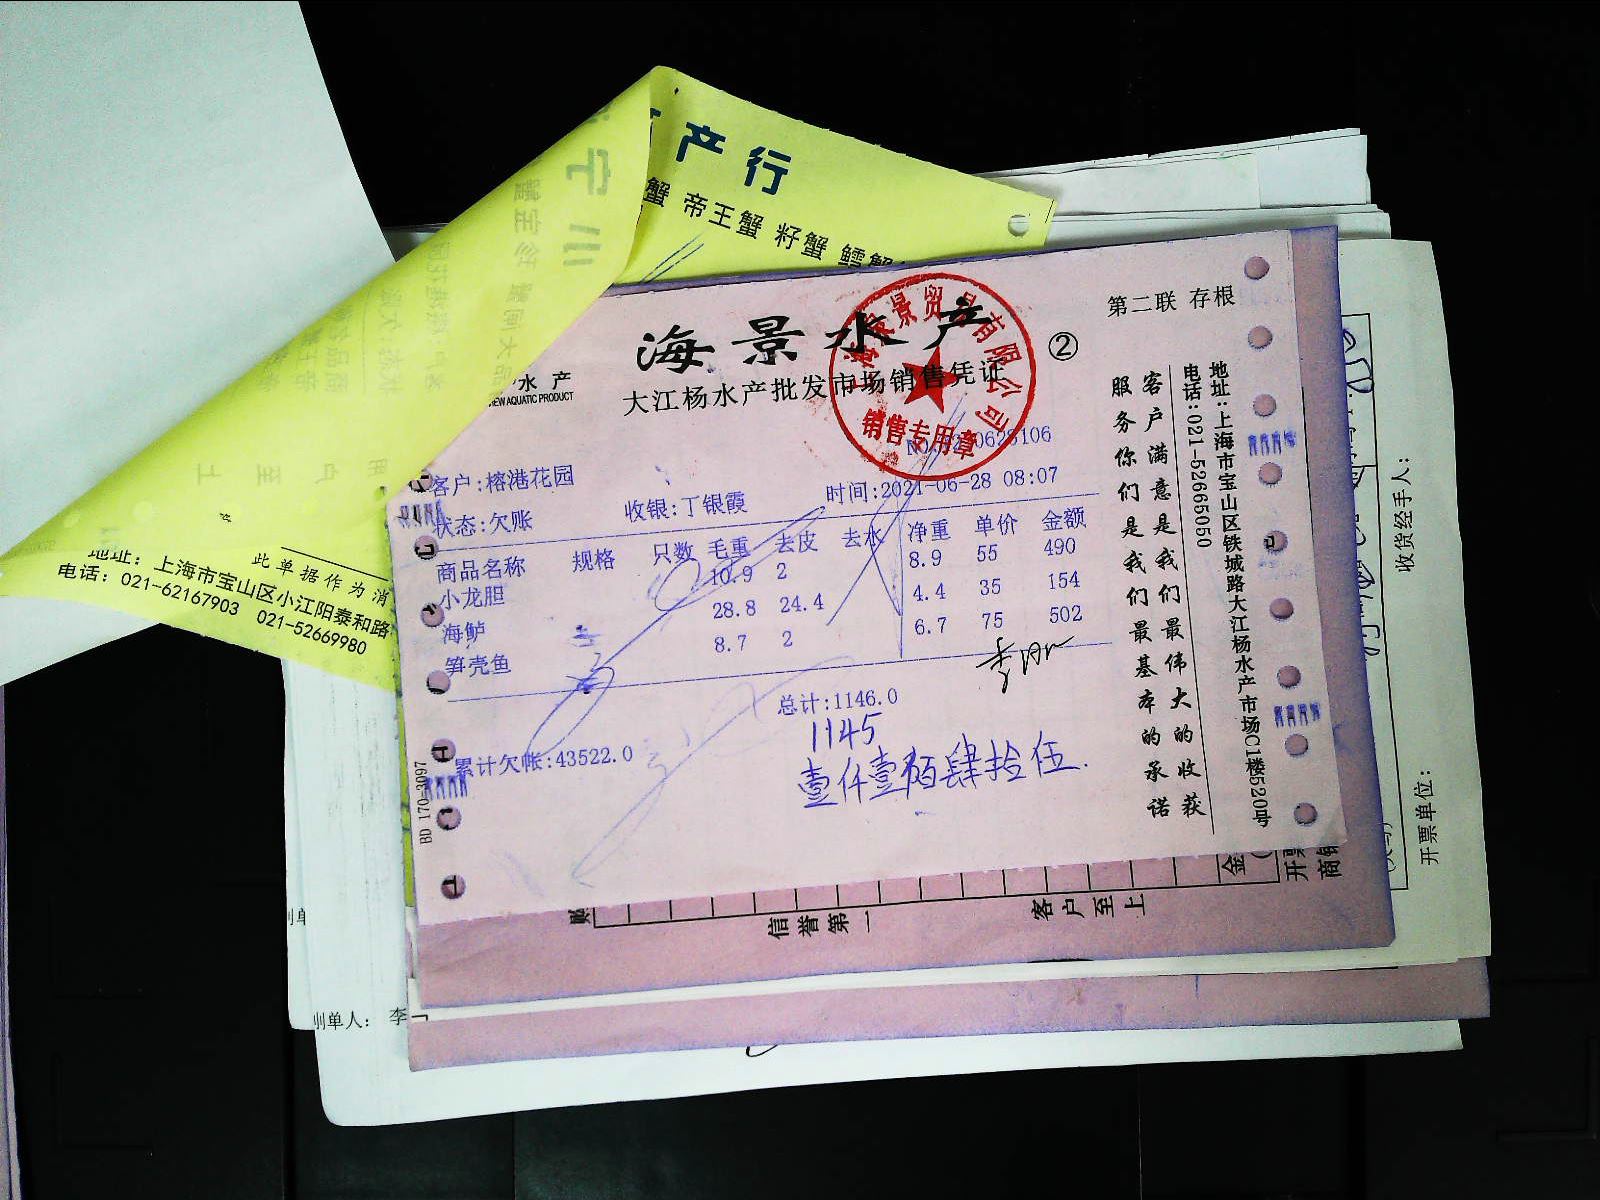 产行
蟹 帝王蟹 籽蟹 鳕蟹
海景水产
大江杨水产批发市场销售凭证
②
第二联 存根
水产
EW AQUATIC PRODUCT
有限公司
销售专用章
客户:榕港花园
状态:欠账
收银:丁银霞
时间:2021-06-28 08:07
商品名称 规格 只数 毛重 去皮 去水 净重 单价 金额
小龙胆 10.9 2 8.9 55 490
海鲈 28.8 24.4 4.4 35 154
笋壳鱼 8.7 2 6.7 75 502
总计:1146.0
1145
壹仟壹佰肆拾伍
累计欠帐:43522.0
BD 170-3097
客户满意是我们最伟大的收获
服务你们是我们最基本的承诺
地址:上海市宝山区铁城路大江杨水产市场C1楼520号
电话:021-52665050
此单据作为消
地址: 上海市宝山区小江阳泰和路
电话: 021-62167903 021-52669980
收货经手人:
开票单位:
信誉第一
客户至上
金
制单人: 李